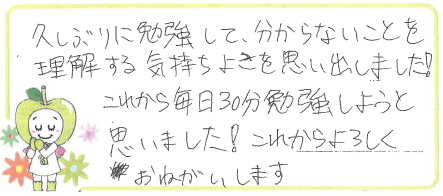 久しぶりに勉強して、分からないことを
理解する気持ちよさを思い出しました!
これから毎日30分勉強しようと
思いました!これからよろしく
おねがいします